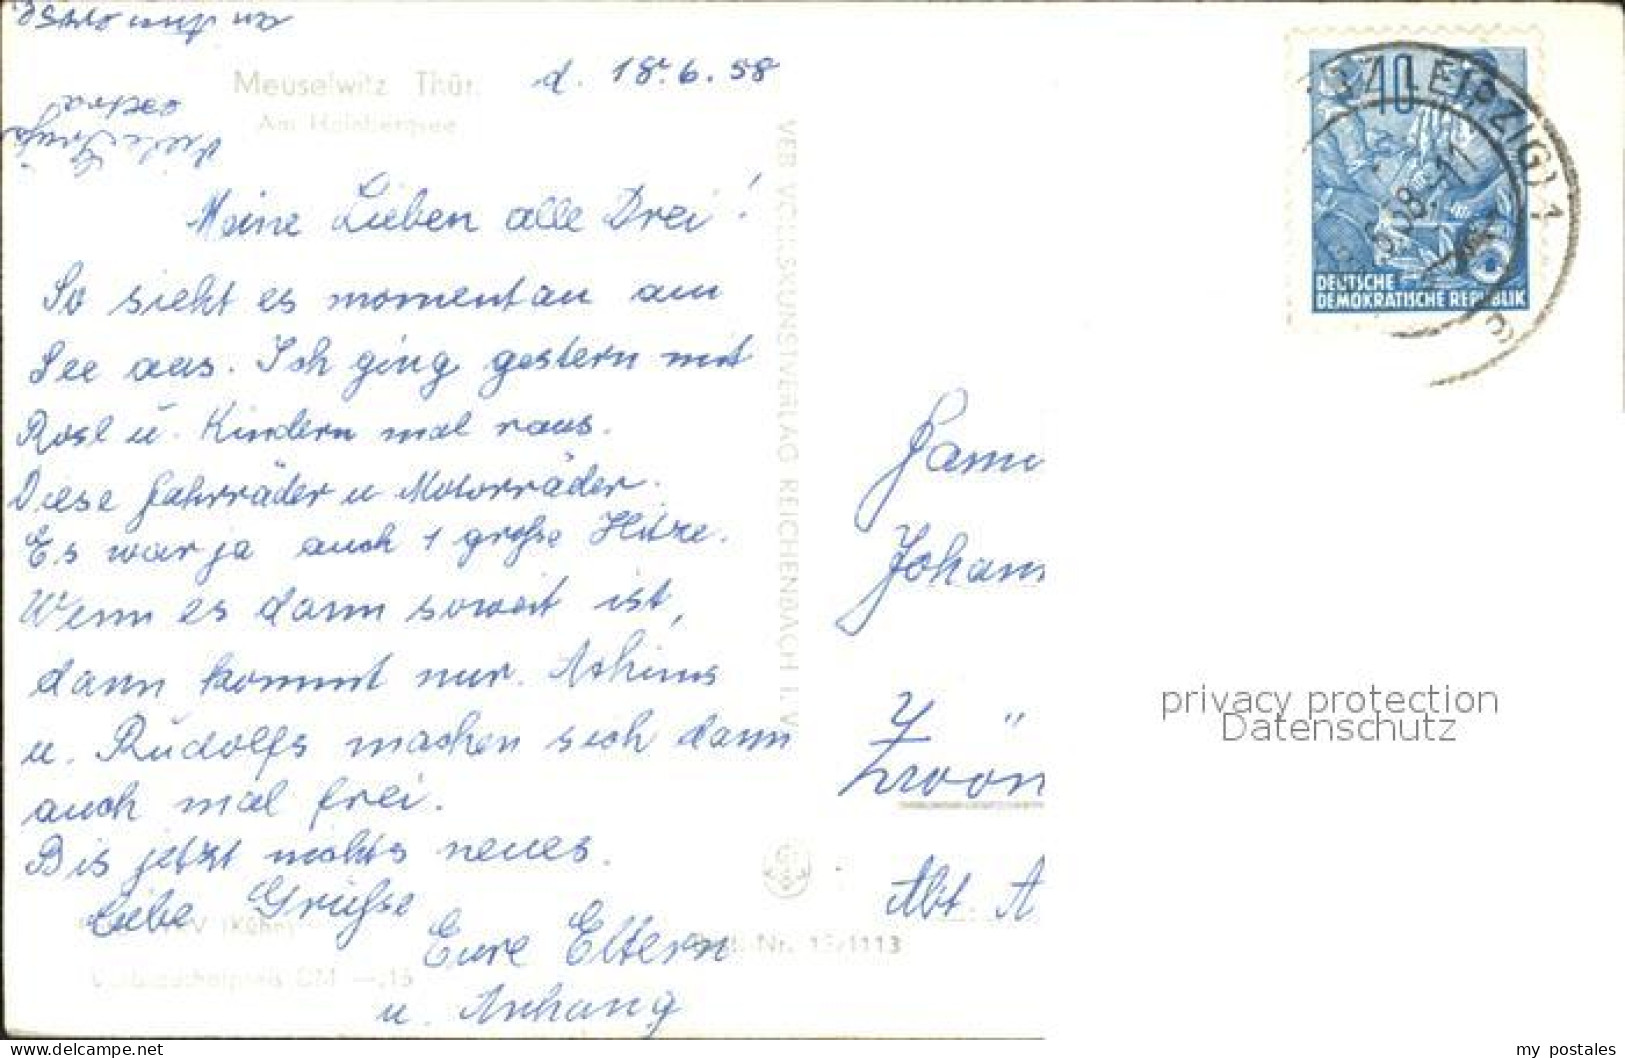 Meuselwitz Thür.
Am Hainbergsee
d. 18.6.58
Viele Grüße
extra
Meine Lieben alle Drei!
So sieht es momentan am
See aus. Ich ging gestern mit
Rosl u. Kindern mal raus.
Diese Fahrräder u Motorräder.
Es war ja auch 1 große Hitze.
Wenn es dann soweit ist,
dann kommt nur. Achims
u. Rudolfs machen sich dann
auch mal frei.
Bis jetzt nichts neues.
Liebe Grüße
Eure Eltern
u. Anhang
VEB VOLKSKUNSTVERLAG REICHENBACH I. V.
(Kühn)
Verbraucherpreis DM —,15
Nr. 1113
40
DEUTSCHE
DEMOKRATISCHE REPUBLIK
LEIPZIG
Fam
Johann
Zwön
Abt. A
privacy protection
Datenschutz
my postales